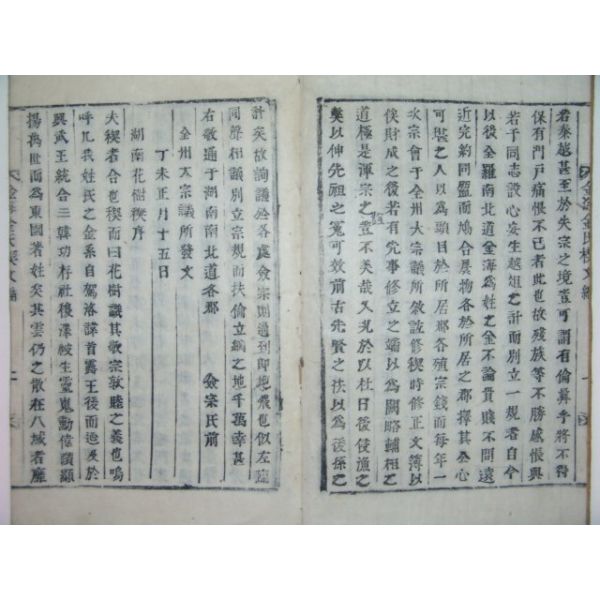 若秦越甚至於失宗之境豈可謂有倫算乎將不得
保有門戶痛恨不已者此也故殘族等不勝感悵與
若干同志設心妄生越俎之計而別立一規者自今
以後全羅南北道金海爲姓之金不論貴賤不問遠
近完約同盟而鳩合屢物各於所居之郡擇其公心
可堪之人以爲頭目於所居郡各殖宗錢而每年一
次宗會于全州大宗議所敘誼修稧時修正文簿以
俟財成之後若有先事修立之端以爲闕略補相之
道極是渾宗之豈不美哉又况於以杜日後侵漁之
獘以伸先祖之冤可效前古先賢之扶以爲後孫之
計矣故詢議於各處僉宗則通到卽地飛也似左旋
同聲相議別立宗規而扶倫立綱之地千萬幸甚
右敬通于湖南南北道各郡 僉宗氏前
全州大宗議所發文
丁未正月十五日
湖南花樹稧序
大稧者合也稧而曰花樹議其敦宗敦睦之義也嗚
呼凡我姓氏之金系自駕洛諱首露王後而迨及於
興武王統合三韓功存社稷澤被生靈嵬勳偉蹟顯
揚萬世而爲東國著姓矣其雲仍之散在八域者龐